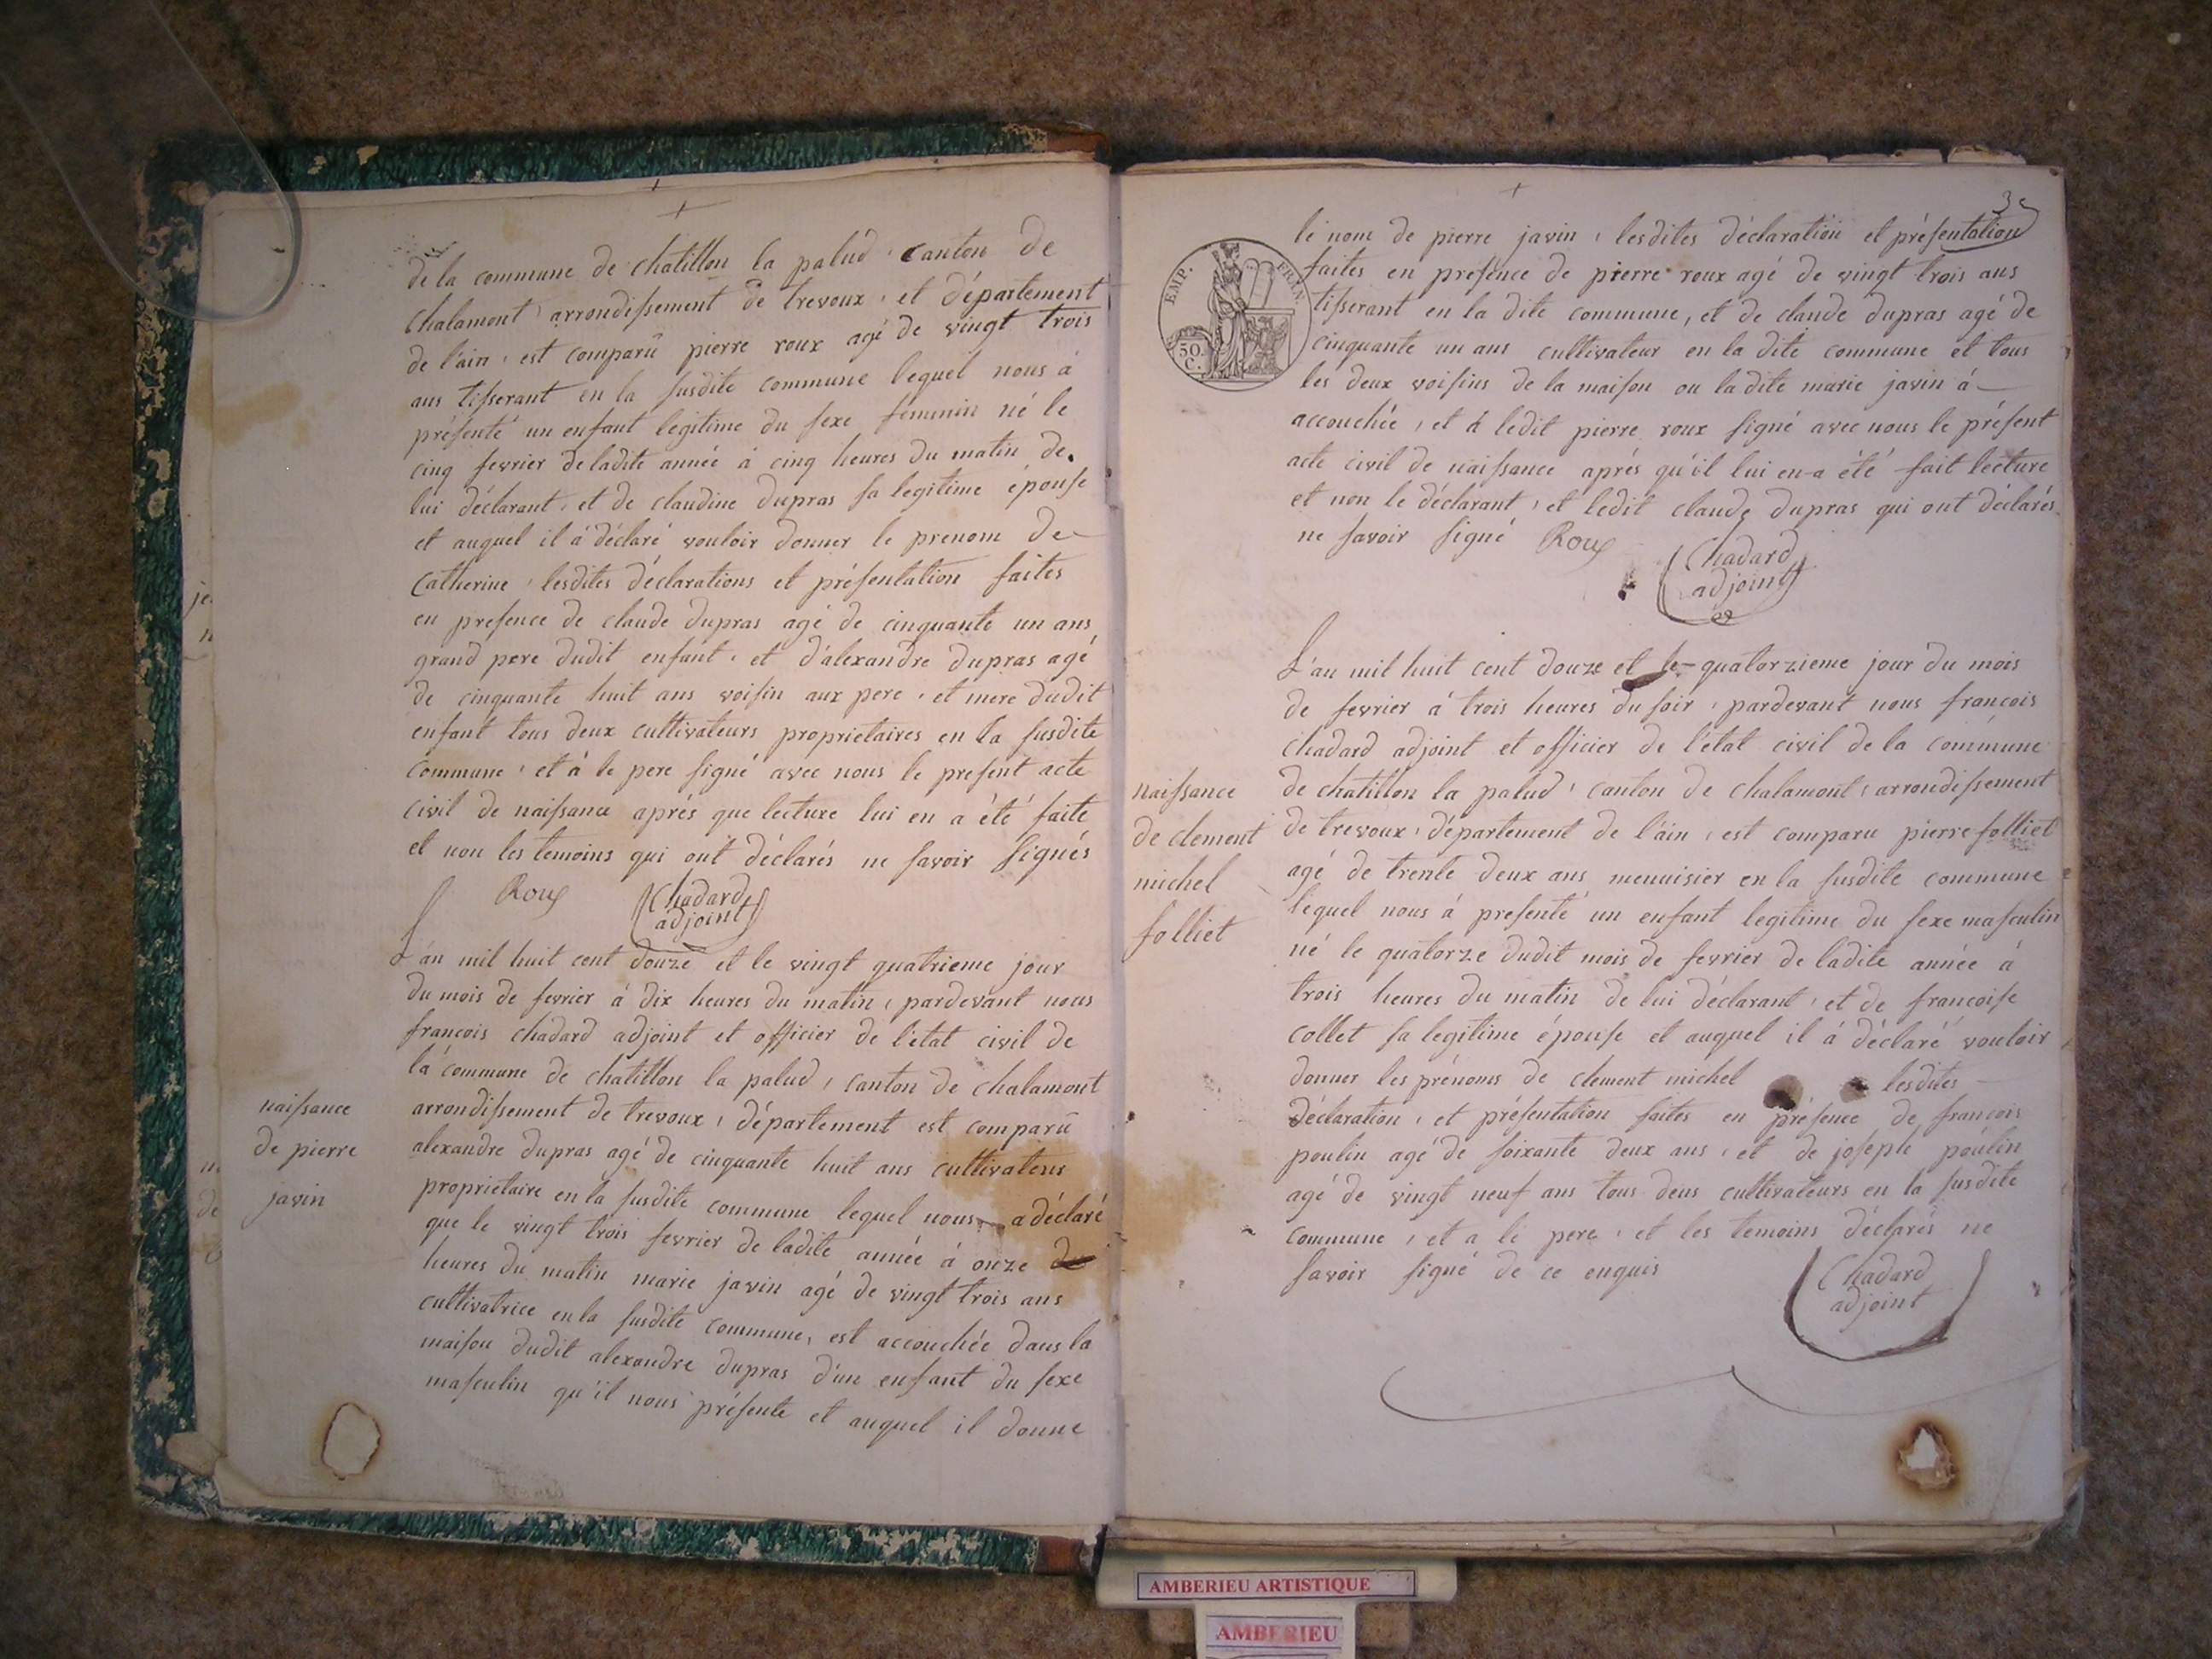 de la commune de chatillon la palud, canton de
chalamont arrondissement de trevoux, et département
de l'ain, est comparû pierre roux agé de vingt trois
ans tisserant en la susdite commune lequel nous à
présenté un enfant legitime du sexe féminin né le
cinq fevrier de ladite année à cinq heures du matin de
lui déclarant, et de claudine dupras sa legitime épouse
et auquel il à déclaré vouloir donner le prenom de
Catherine, lesdites déclarations et présentation faites
en presence de claude dupras agé de cinquante un ans
grand pere dudit enfant, et d'alexandre dupras agé
de cinquante huit ans voisin aux pere, et mere dudit
enfant tous deux cultivateurs proprietaires en la susdite
commune, et à le pere signé avec nous le present acte
civil de naissance aprés que lecture lui en a été faite
et non les temoins qui ont déclarés ne savoir signés
Roux Chadard
adjoint
L'an mil huit cent douze et le vingt quatrieme jour
du mois de fevrier à dix heures du matin, pardevant nous
françois chadard adjoint et officier de l'état civil de
la commune de chatillon la palud, canton de chalamont
arrondissement de trevoux, département est comparû
alexandre dupras agé de cinquante huit ans cultivateus
proprietaire en la susdite commune lequel nous a déclaré
que le vingt trois fevrier de ladite année à onze
heures du matin marie javin agé de vingt trois ans
cultivatrice en la susdite commune, est accouchée dans la
maison dudit alexandre dupras d'un enfant du sexe
masculin qu'il nous présente et auquel il donne
naissance
de pierre
javin
3e
le nom de pierre javin, lesdites déclaration et présentation
faites en presence de pierre roux agé de vingt trois ans
tisserant en la dite commune, et de claude dupras agé de
cinquante un ans cultivateur en la dite commune et tous
les deux voisins de la maison ou ladite marie javin à
accouchée, et à ledit pierre roux signé avec nous le présent
acte civil de naissance aprés qu'il lui en a été fait lecture
et non le déclarant, et ledit claude dupras qui ont déclarés
ne savoir signé Roux Chadard
adjoint
EMP. FRAN.
50.
C.
L'an mil huit cent douze et le quatorzieme jour du mois
de fevrier à trois heures du soir, pardevant nous françois
chadard adjoint et officier de l'état civil de la commune
de chatillon la palud, canton de chalamont, arrondissement
de trevoux, département de l'ain, est comparu pierre folliet
agé de trente deux ans menuisier en la susdite commune
lequel nous à presenté un enfant legitime du sexe masculin
né le quatorze dudit mois de fevrier de ladite année à
trois heures du matin de lui déclarant, et de françoise
collet sa legitime épouse et auquel il à déclaré vouloir
donner les prénoms de clement michel lesdites
déclaration, et présentation faites en présence de françois
poulin agé de soixante deux ans, et de joseph poulin
agé de vingt neuf ans tous deus cultivateurs en la susdite
commune, et a le pere, et les temoins déclarés ne
savoir signé de ce enquis Chadard
adjoint
naissance
de clement
michel
folliet
AMBERIEU ARTISTIQUE
AMBERIEU